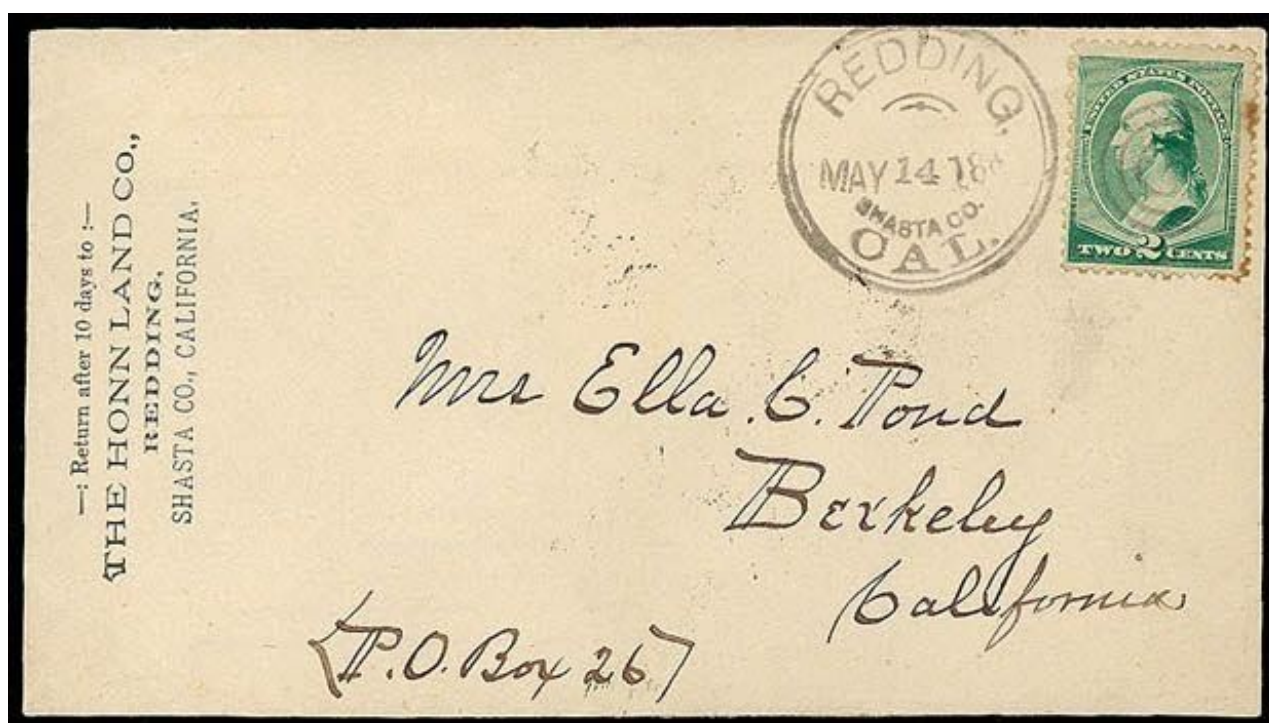 —: Return after 10 days to :—
THE HONN LAND CO.,
REDDING.
SHASTA CO., CALIFORNIA.
REDDING.
MAY 14 188
SHASTA CO.
CAL.
UNITED STATES POSTAGE
TWO 2 CENTS
Mrs Ella C. Pond
Berkeley
California
P.O. Box 26